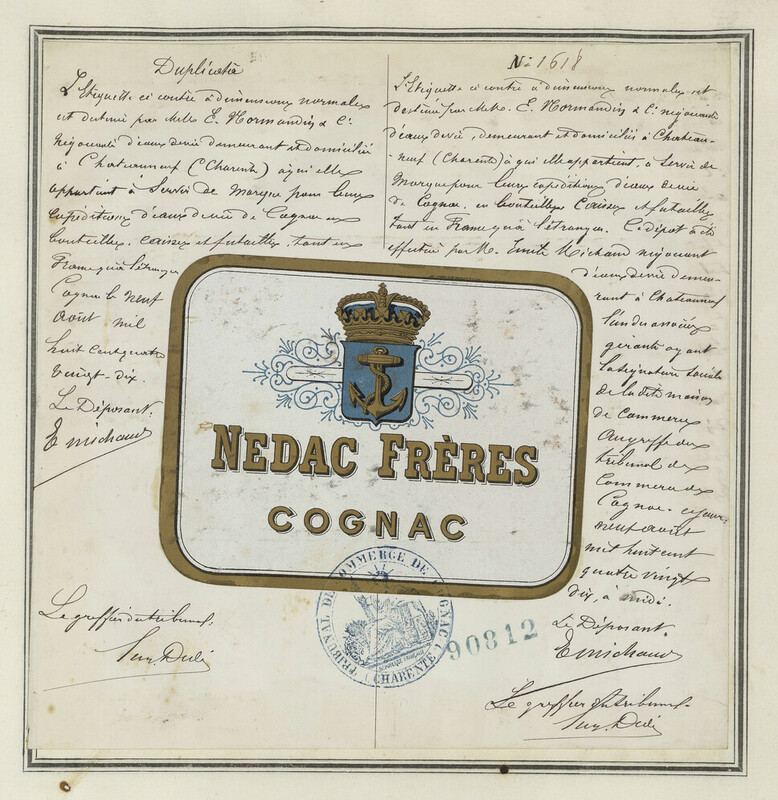 Duplicata
L'Etiquette ci contre à dimensions normales
est destiné par Mrs E. Normandin & Cie
négociants d'eaux devie demeurant et domiciliés
à Chateauneuf (Charente) à qui elle
appartient à Servir de Marque pour leurs
expéditions d'eaux devie de Cognac en
bouteilles, caisses et futailles, tant en
France qu'à l'étranger
Cognac le neuf
Août mil
huit cent quatre
vingt-dix.
Le Déposant.
E Michaud
Le greffier du tribunal.
No 1618
L'Etiquette ci contre à dimensions normales est
destiné par Mrs. E. Normandin & Cie négociants
d'eaux devie, demeurant et domiciliés à Chateau-
neuf (Charente) à qui elle appartient, à Servir de
Marque pour leurs expéditions d'eaux devie
de Cognac, en bouteilles Caisses et futailles
tant en France qu'à l'étranger. Ce dépot a été
effectué par M. Emile Michaud négociant
d'eaux devie demeu-
rant à Chateauneuf
l'un des associés
gérants ayant
la signature sociale
de la dite maison
de Commerce
Au greffe du
tribunal de
Commerce de
Cognac, ce jour,
neuf Août
mil huit cent
quatre vingt
dix, à midi.
Le Déposant.
E Michaud
Le greffier du tribunal.
NEDAC FRÈRES
COGNAC
TRIBUNAL DE COMMERCE DE COGNAC
(CHARENTE)
90812